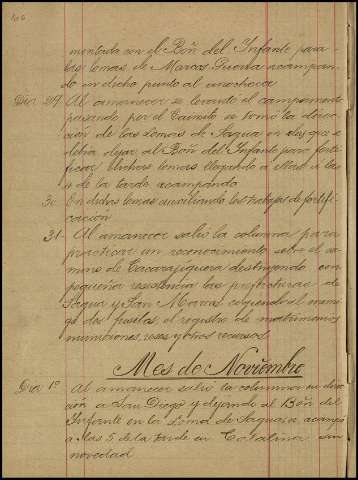 montada con el Bón del Infante para
las lomas de Marcos Puerta acampan
do en dicho punto al anochecer
Dia 29 Al amanecer se levanto el campamento
pasando por el Caimito se tomo la direc
cion de las Lomas de Jagua en las que se
debia dejar al Bón del Infante para forti
ficar dichas lomas llegando a ellas a las
4 de la tarde acampando
30 En dichas lomas auxiliando los trabajos de fortifi
cación
31 Al amanecer salió la columna para
practicar un reconocimiento sobre el ca
mino de Cacarajiquera destruyendo con
pequeña resistencia las prefecturas de
Jagua y San Marcos cogiendo al enemi
go dos fusiles, el registro de matrimonios
municiones, reses y otros recursos
Mes de Noviembre
Dia 1º Al amanecer salió la columna en direc
ción a San Diego y dejando al Bón del
Infante en la Loma de Jagua acampó
a las 5 de la tarde en Catalina sin
novedad